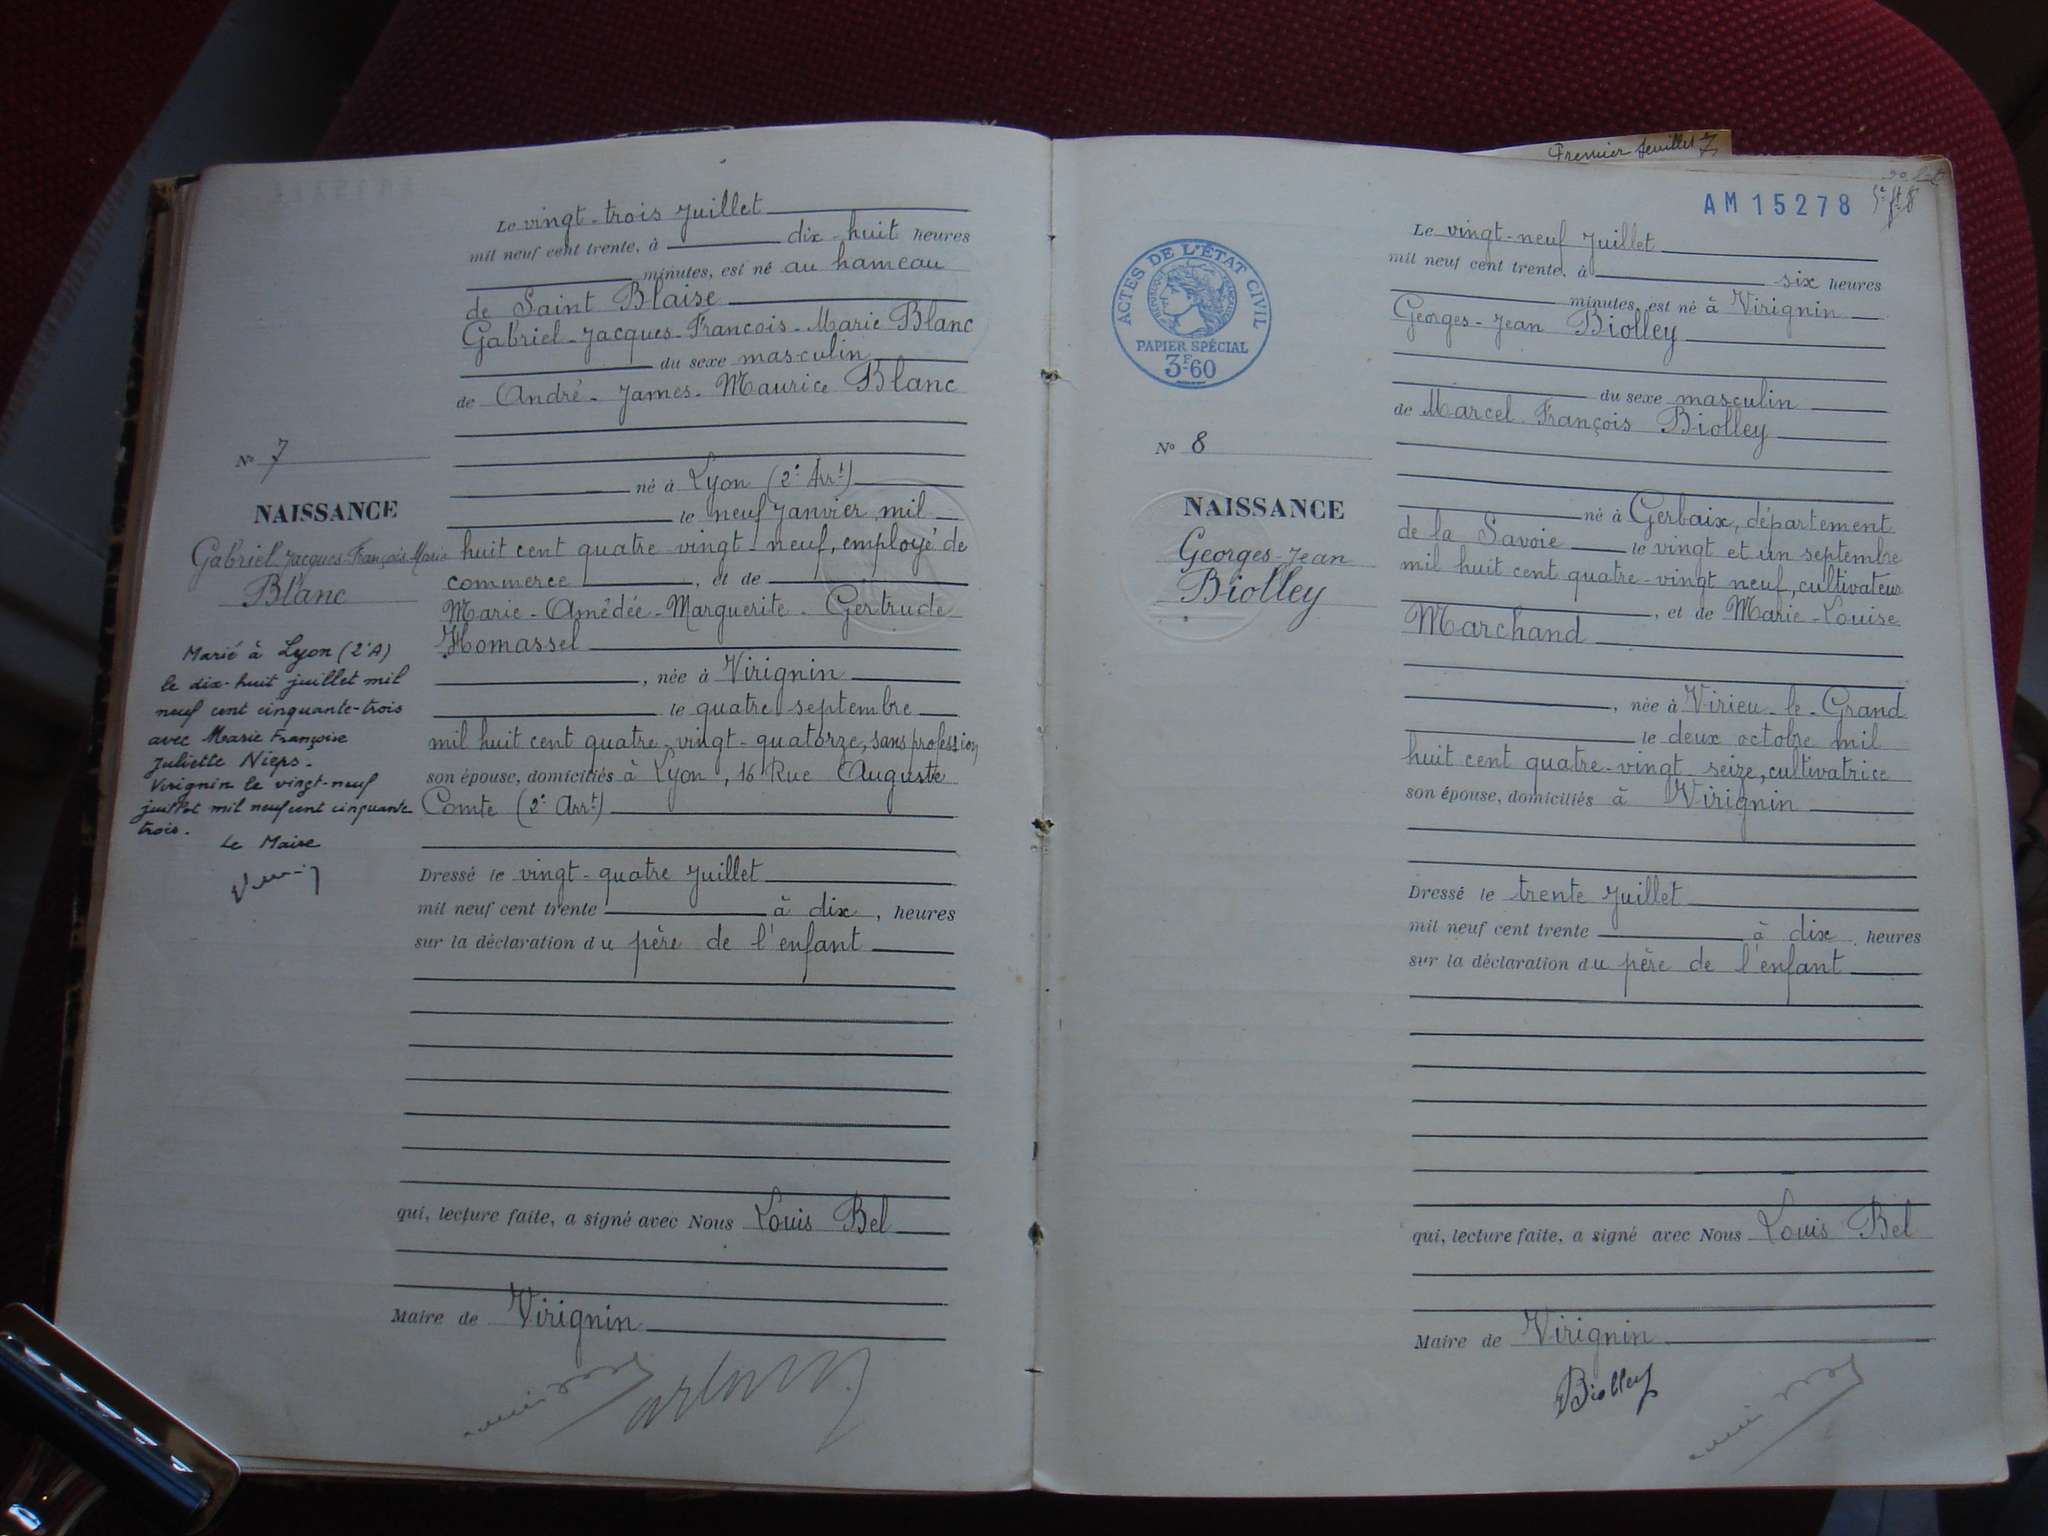 Le vingt-trois Juillet
mil neuf cent trente, à dix-huit heures
minutes, est né au hameau
de Saint Blaise
Gabriel-Jacques-François-Marie Blanc
du sexe masculin
de André-James-Maurice Blanc
né à Lyon (2e Arrt)
le neuf Janvier mil
huit cent quatre-vingt-neuf, employé de
commerce, et de
Marie-Amédée-Marguerite-Gertrude
Homassel
, née à Virignin
le quatre septembre
mil huit cent quatre-vingt-quatorze, sans profession,
son épouse, domiciliés à Lyon, 16 Rue Auguste
Comte (2e Arrt)
Dressé le vingt-quatre Juillet
mil neuf cent trente à dix, heures
sur la déclaration du père de l'enfant
qui, lecture faite, a signé avec Nous Louis Bel
Maire de Virignin
No 7
NAISSANCE
Gabriel Jacques-François-Marie
Blanc
Marié à Lyon (2eA)
le dix-huit juillet mil
neuf cent cinquante-trois
avec Marie Françoise
Juliette Nieps.
Virignin le vingt-neuf
juillet mil neuf cent cinquante
trois.
Le Maire
Premier feuillet 7
AM 15278
ACTES DE L'ÉTAT CIVIL
PAPIER SPÉCIAL
3F60
No 8
NAISSANCE
Georges-Jean
Biolley
Le vingt-neuf Juillet
mil neuf cent trente, à six heures
minutes, est né à Virignin
Georges-Jean Biolley
du sexe masculin
de Marcel François Biolley
né à Gerbaix, département
de la Savoie le vingt et un septembre
mil huit cent quatre-vingt neuf, cultivateur
, et de Marie-Louise
Marchand
, née à Virieu-le-Grand
le deux octobre mil
huit cent quatre-vingt seize, cultivatrice
son épouse, domiciliés à Virignin
Dressé le trente Juillet
mil neuf cent trente à dix heures
sur la déclaration du père de l'enfant
qui, lecture faite, a signé avec Nous Louis Bel
Maire de Virignin
Biolley